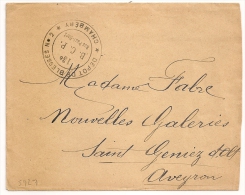 DEPOT DE BLESSES N° 2
13e
B. C. P.
CHAMBERY
Madame Fabre
Nouvelles Galeries
Saint Geniez d'Olt
Aveyron